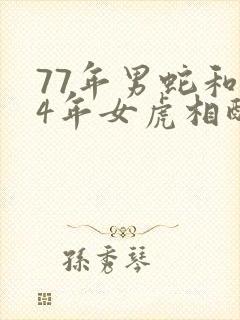 77年男蛇和
4年女虎相配
孫秀琴